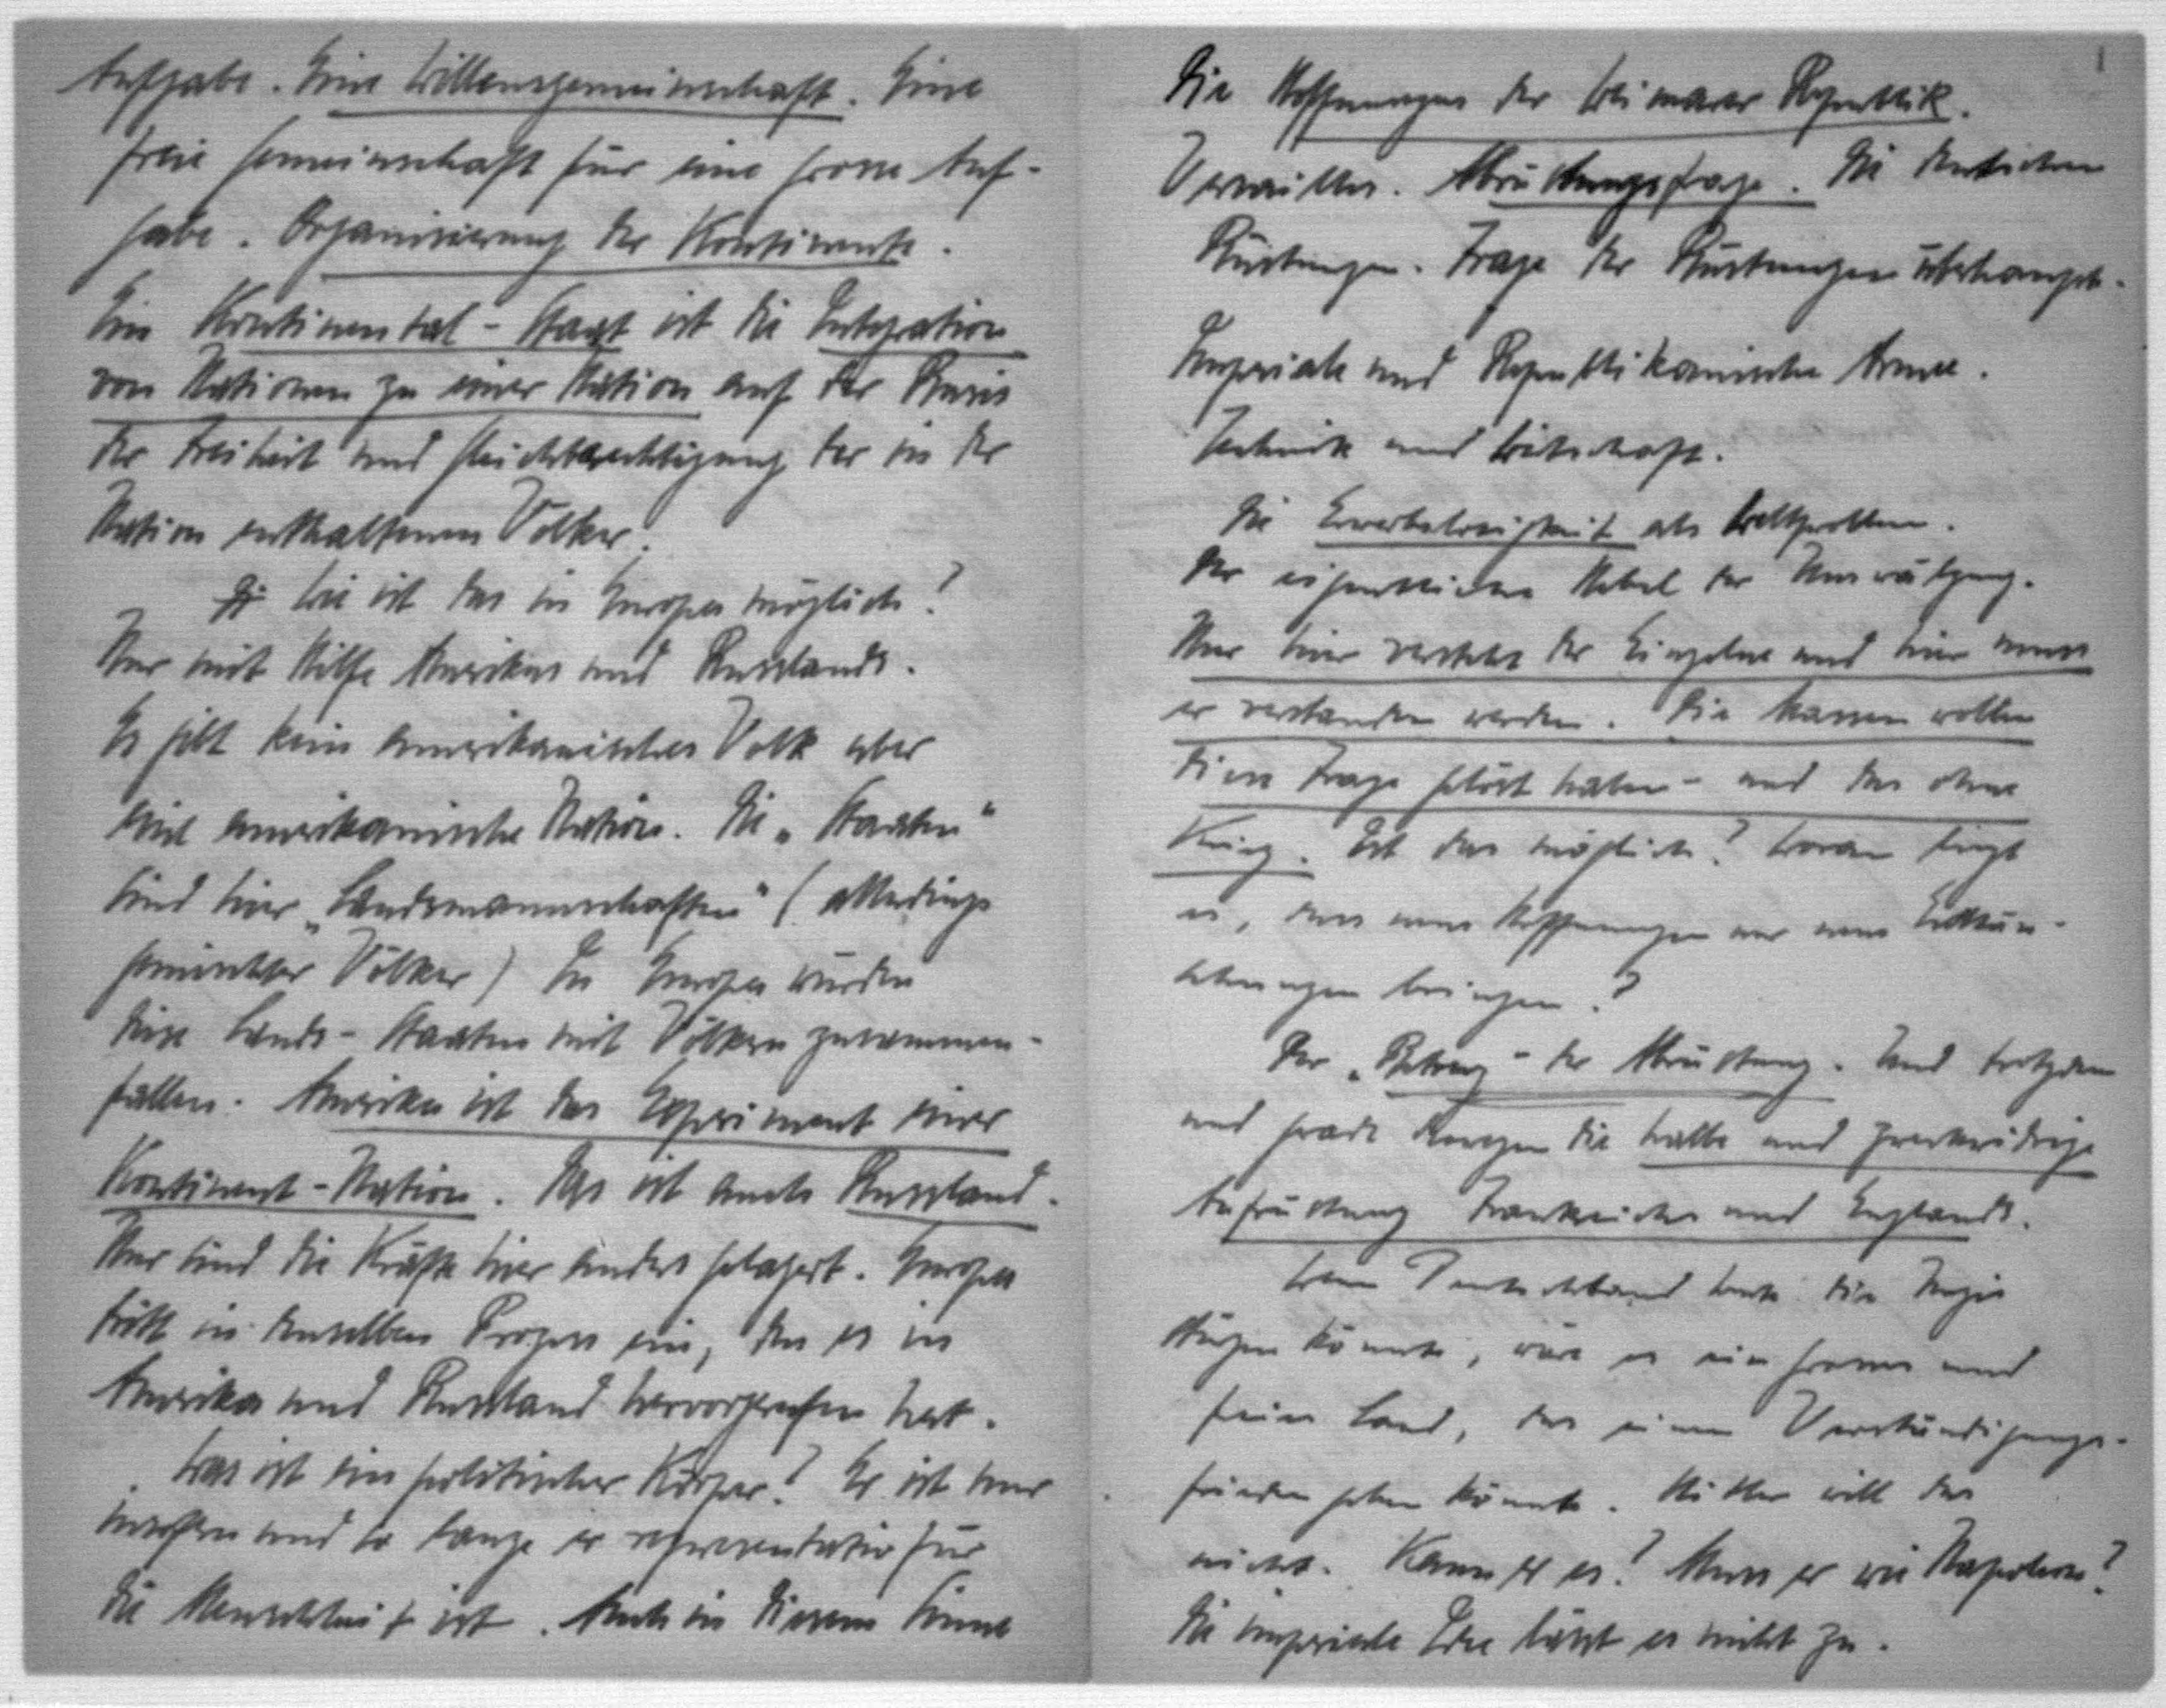 Aufgabe. Eine Willensgemeinschaft. Eine
freie Gemeinschaft für eine grosse Auf-
gabe. Organisierung der Kontinente.
Ein Kontinental-Staat ist die Integration
von Nationen zu einer Nation auf der Basis
der Freiheit und Gleichberechtigung der in der
Nation enthaltenen Völker.
Wie ist das in Europa möglich?
Nur mit Hilfe Amerikas und Russlands.
Es gibt kein amerikanisches Volk aber
eine amerikanische Nation. Die „Staaten“
sind hier „Landsmannschaften“ (allerdings
gemischter Völker) In Europa würden
diese Lands-Staaten mit Völkern zusammen-
fallen. Amerika ist das Experiment einer
Kontinent-Nation. Das ist auch Russland.
Nur sind die Kräfte hier anders gelagert. Europa
tritt in denselben Prozess ein, den es in
Amerika und Russland hervorgerufen hat.
Was ist ein politischer Körper? Er ist nur
insofern und so lange er representativ für
die Menschheit ist. Auch in diesem Sinne
Die Hoffnungen der Weimarer Republik.
Versailles. Abrüstungsfrage. Die deutschen
Rüstungen. Frage der Rüstungen überhaupt.
Imperiale und Republikanische Armee.
Technik und Wirtschaft.
Die Erwerbslosigkeit als Weltproblem.
Der eigentliche Hebel der Umwälzung.
Nur hier versteht der Einzelne und hier muss
er verstanden werden. Die Massen wollen
diese Frage gelöst haben - und das ohne
Krieg. Ist das möglich? Woran liegt
es, dass neue Hoffnungen nur neue Enttäu-
schungen bringen?
Der „Betrug“ der Abrüstung. Und trotzdem
und grade deswegen die halbe und zweckwidrige
Aufrüstung Frankreichs und Englands.
Wenn Deutschland heute die Nazis
stürzen könnte, wäre es ein grosses und
freies Land, das einen Verständigungs-
frieden geben könnte. Hitler will das
nicht. Kann er es? Muss er wie Napoleon?
Die imperiale Idee lässt es nicht zu.